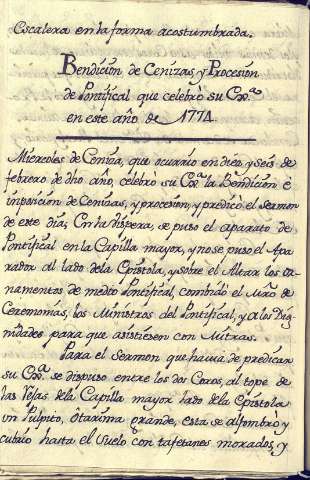 Escalera en la forma acostumbrada.
Bendicion de Cenizas, y Procesion
de Pontifical que celebró su Exª.
en este año de 1774.
Miercoles de Ceniza, que ocurrió en diez y seis de
febrero de dho año, celebró su Exª. la Bendicion è
imposicion de Cenizas, y procesion, y predicó el Sermon
de este dia; En la vispera, se puso el aparato de
Pontifical en la Capilla mayor, y no se puso el Apa
rador al lado dela Epistola, y sobre el Altar los or-
namentos de medio Pontifical, combidó el Mrõ de
Ceremonias, los Ministros del Pontifical, y a las Dig
nidades para que asistiesen con Mitras.
Para el Sermon que havia de predicar
su Exª. se dispuso entre los dos Coros, al tope de
las Vejas dela Capilla mayor lado dela Epistola
un Pulpito, ô tarima grande, esta se alfombró y
cubrió hasta el suelo con tafetanes morados, y